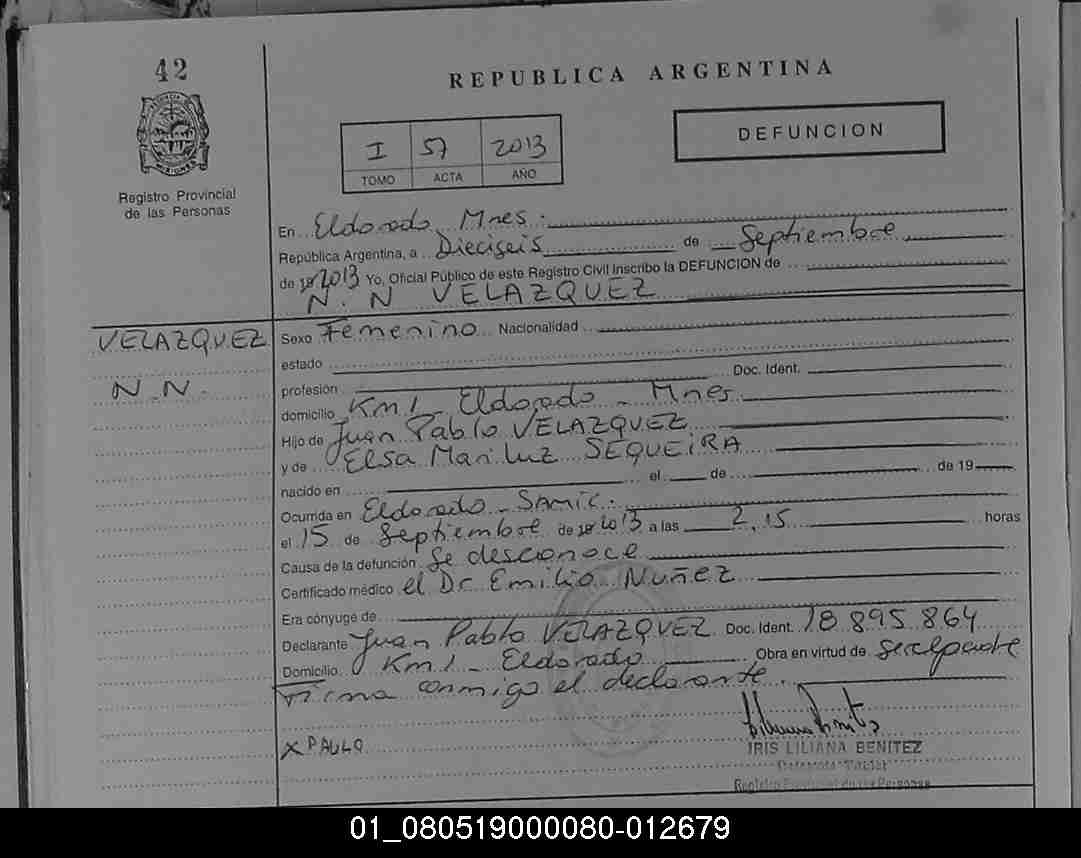 42
REPUBLICA ARGENTINA
DEFUNCION
I 57 2013
TOMO ACTA AÑO
PROVINCIA DE MISIONES
Registro Provincial
de las Personas
En Eldorado Mnes.
República Argentina, a Dieciseis de Septiembre
de 2013 Yo, Oficial Público de este Registro Civil inscribo la DEFUNCION de
N. N VELAZQUEZ
VELAZQUEZ
N.N.
Sexo Femenino Nacionalidad
estado
profesión Doc. Ident.
domicilio Km 1 Eldorado - Mnes.
Hijo de Juan Pablo VELAZQUEZ
y de Elsa Mariluz SEQUEIRA
nacido en el de de 19
Ocurrida en Eldorado - SAMIC.
el 15 de Septiembre de 2013 a las 2,15 horas
Causa de la defunción Se desconoce
Certificado médico el Dr Emilio Nuñez
Era cónyuge de
Declarante Juan Pablo VELAZQUEZ Doc. Ident. 18 895 864
Domicilio Km 1 - Eldorado Obra en virtud de ser el padre
Firma conmigo el declarante.
X PAULO
IRIS LILIANA BENITEZ
Registro Provincial de las Personas
01_080519000080-012679